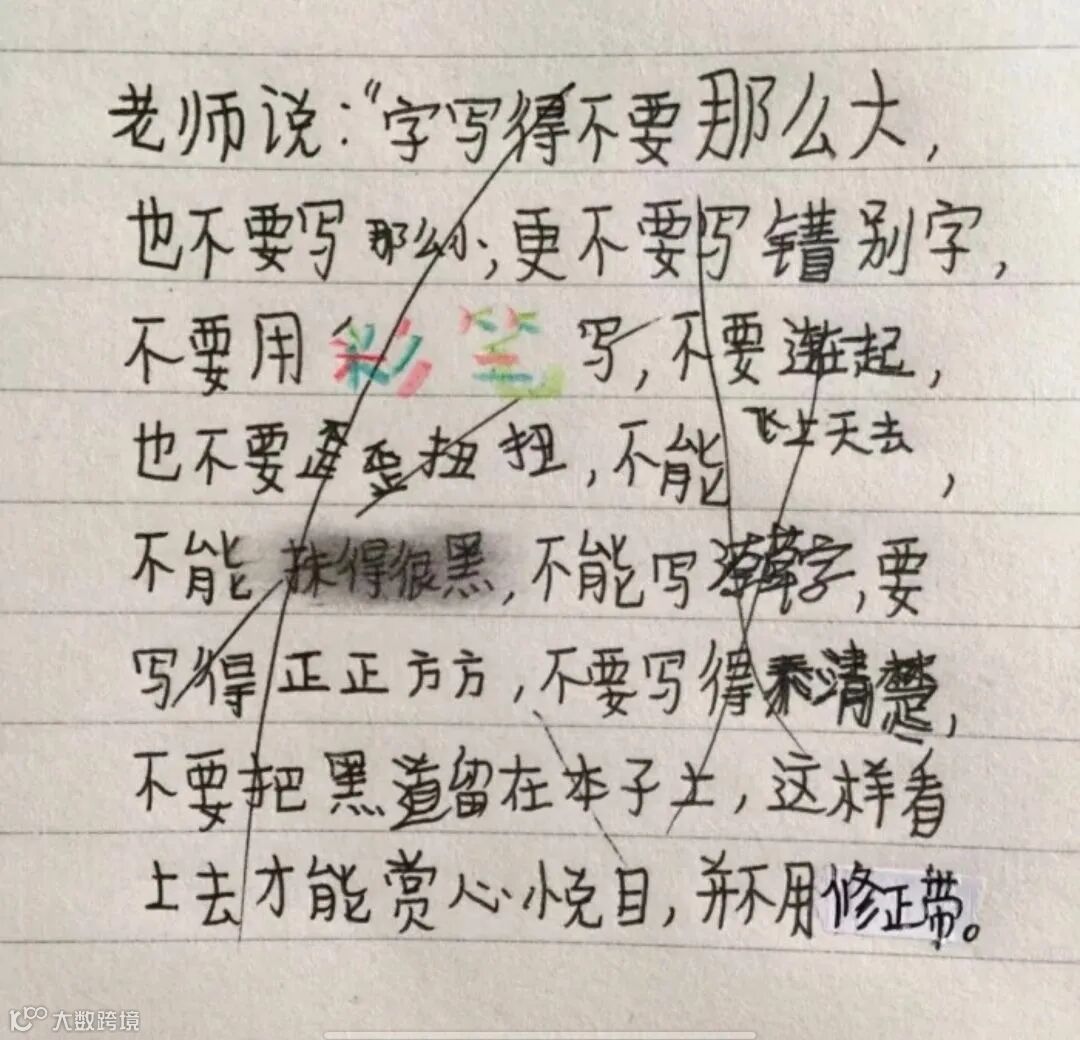 老师说：“字写得不要那么大，
也不要写那么小，更不要写错别字，
不要用彩笔写，不要连在一起，
也不要歪歪扭扭，不能飞上天去，
不能抹得很黑，不能写潦草字，要
写得正正方方，不要写得不清楚，
不要把黑道留在本子上，这样看
上去才能赏心悦目，并不用修正带。
大数跨境